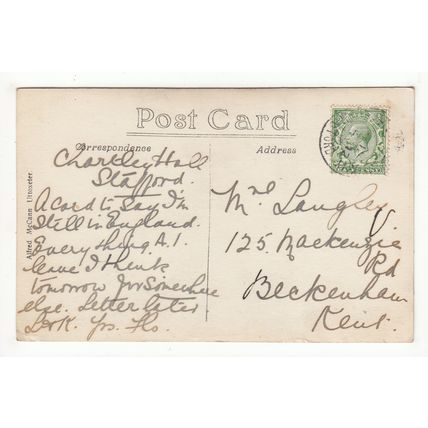 Post Card
Correspondence
Address
Chartley Hall
Stafford.
A card to say I'm
still in England.
Everything A.1.
leave I think
tomorrow for somewhere
else. Letter later
Yrs. Flo.
Mrs Langley
125 Mackenzie
Rd
Beckenham
Kent.
Alfred McCann Uttoxeter